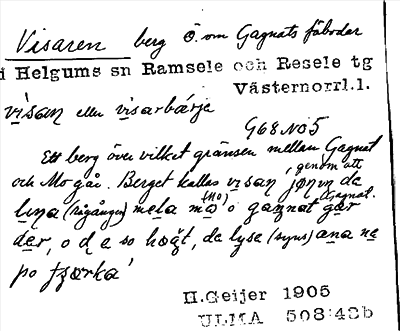 Visaren berg ö. om Gagnäts fäbodar
i Helgums sn Ramsele och Resele tg
Västernorrl.l.
visan eller visarbärje
G68 NO5
Ett berg över vilket gränsen mellan Gagnät
och Mo går. Berget kallas visan, genom att
lina (rågången) mela mo (Mo) o gagnat (Gagnät) går
der, o de e so högt, de lyse (syns) ana ne
po
H.Geijer 1905
ULMA 508:43b